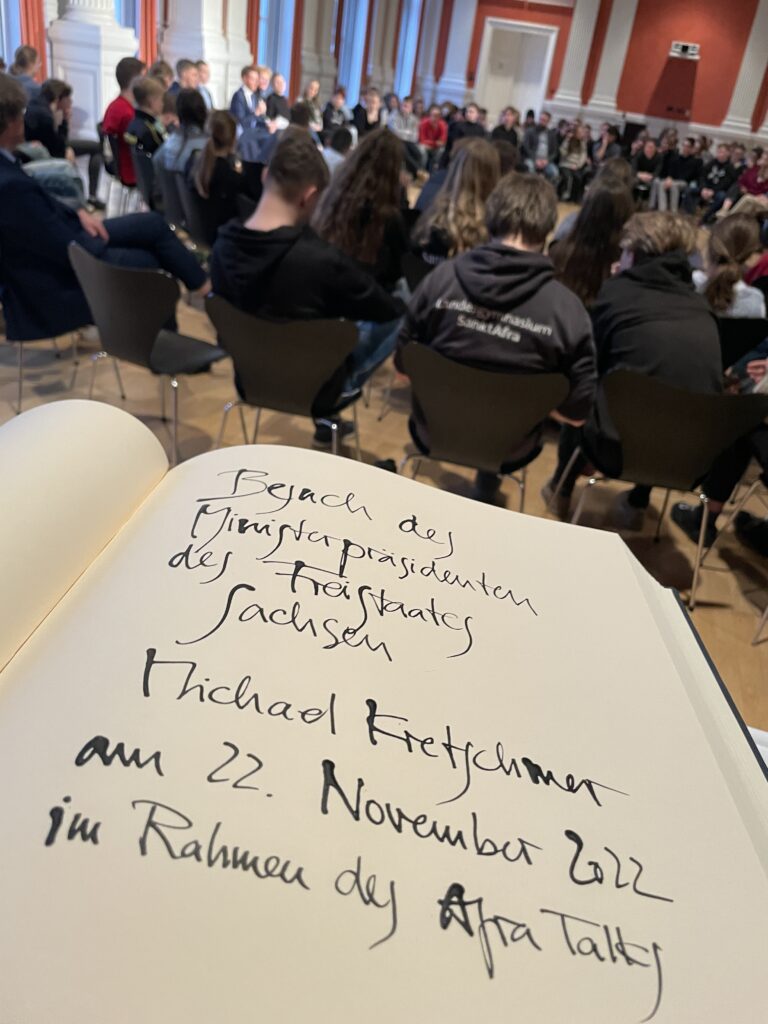 Landesgymnasium
Sankt Afra
Besuch des
Ministerpräsidenten
des Freistaates
Sachsen
Michael Kretschmer
am 22. November 2022
im Rahmen des Afra Talks